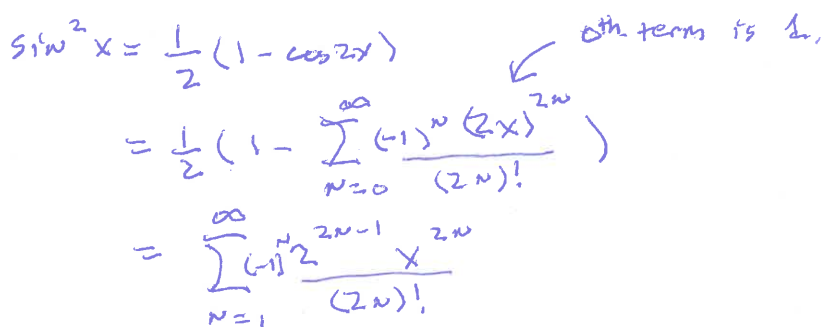 sin² x = 1/2 (1 - cos 2x)
0th term is 1.
= 1/2 (1 - ∑_{n=0}^{∞} (-1)^n (2x)^{2n} / (2n)! )
= ∑_{n=1}^{∞} (-1)^n 2^{2n-1} x^{2n} / (2n)!